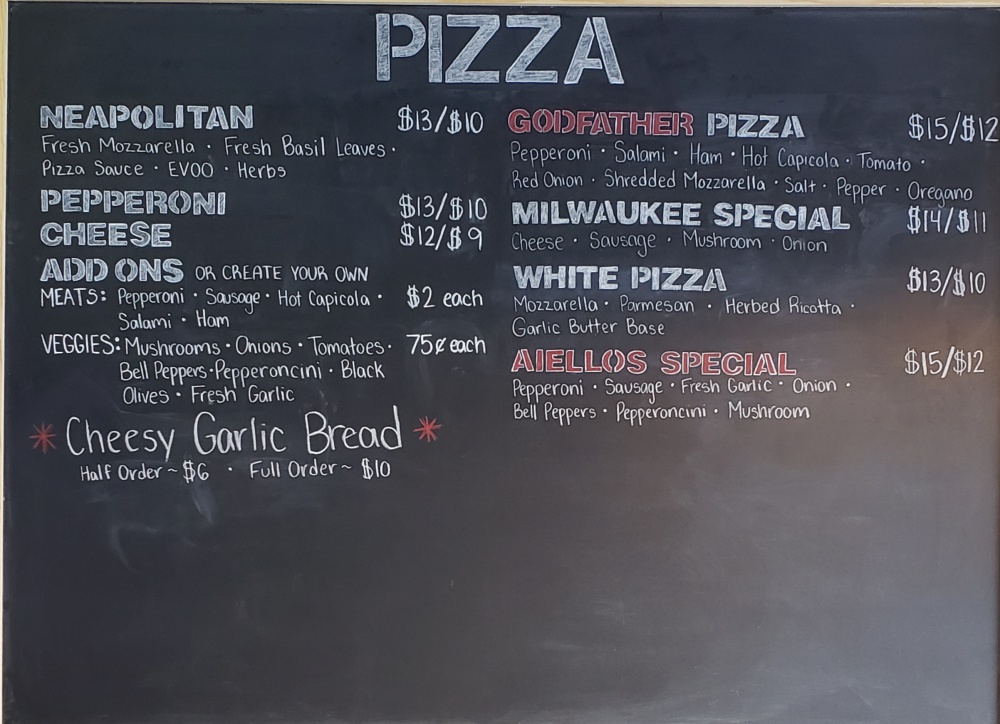 PIZZA
NEAPOLITAN $13/$10
Fresh Mozzarella · Fresh Basil Leaves ·
Pizza Sauce · EVOO · Herbs
PEPPERONI $13/$10
CHEESE $12/$9
ADD ONS OR CREATE YOUR OWN
MEATS: Pepperoni · Sausage · Hot Capicola · $2 each
Salami · Ham
VEGGIES: Mushrooms · Onions · Tomatoes · 75¢ each
Bell Peppers · Pepperoncini · Black
Olives · Fresh Garlic
* Cheesy Garlic Bread *
Half Order ~ $6 · Full Order ~ $10
GODFATHER PIZZA $15/$12
Pepperoni · Salami · Ham · Hot Capicola · Tomato ·
Red Onion · Shredded Mozzarella · Salt · Pepper · Oregano
MILWAUKEE SPECIAL $14/$11
Cheese · Sausage · Mushroom · Onion
WHITE PIZZA $13/$10
Mozzarella · Parmesan · Herbed Ricotta ·
Garlic Butter Base
AIELLOS SPECIAL $15/$12
Pepperoni · Sausage · Fresh Garlic · Onion ·
Bell Peppers · Pepperoncini · Mushroom